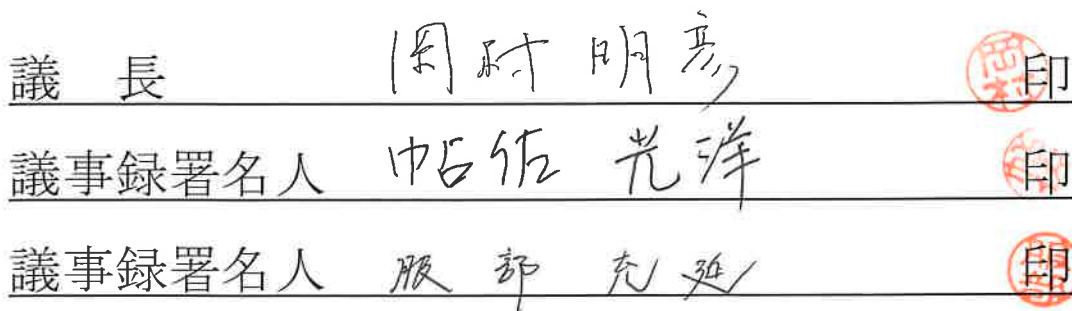 議 長 岡村 明彦 印
議事録署名人 帖佐 光洋 印
議事録署名人 服部 充延 印